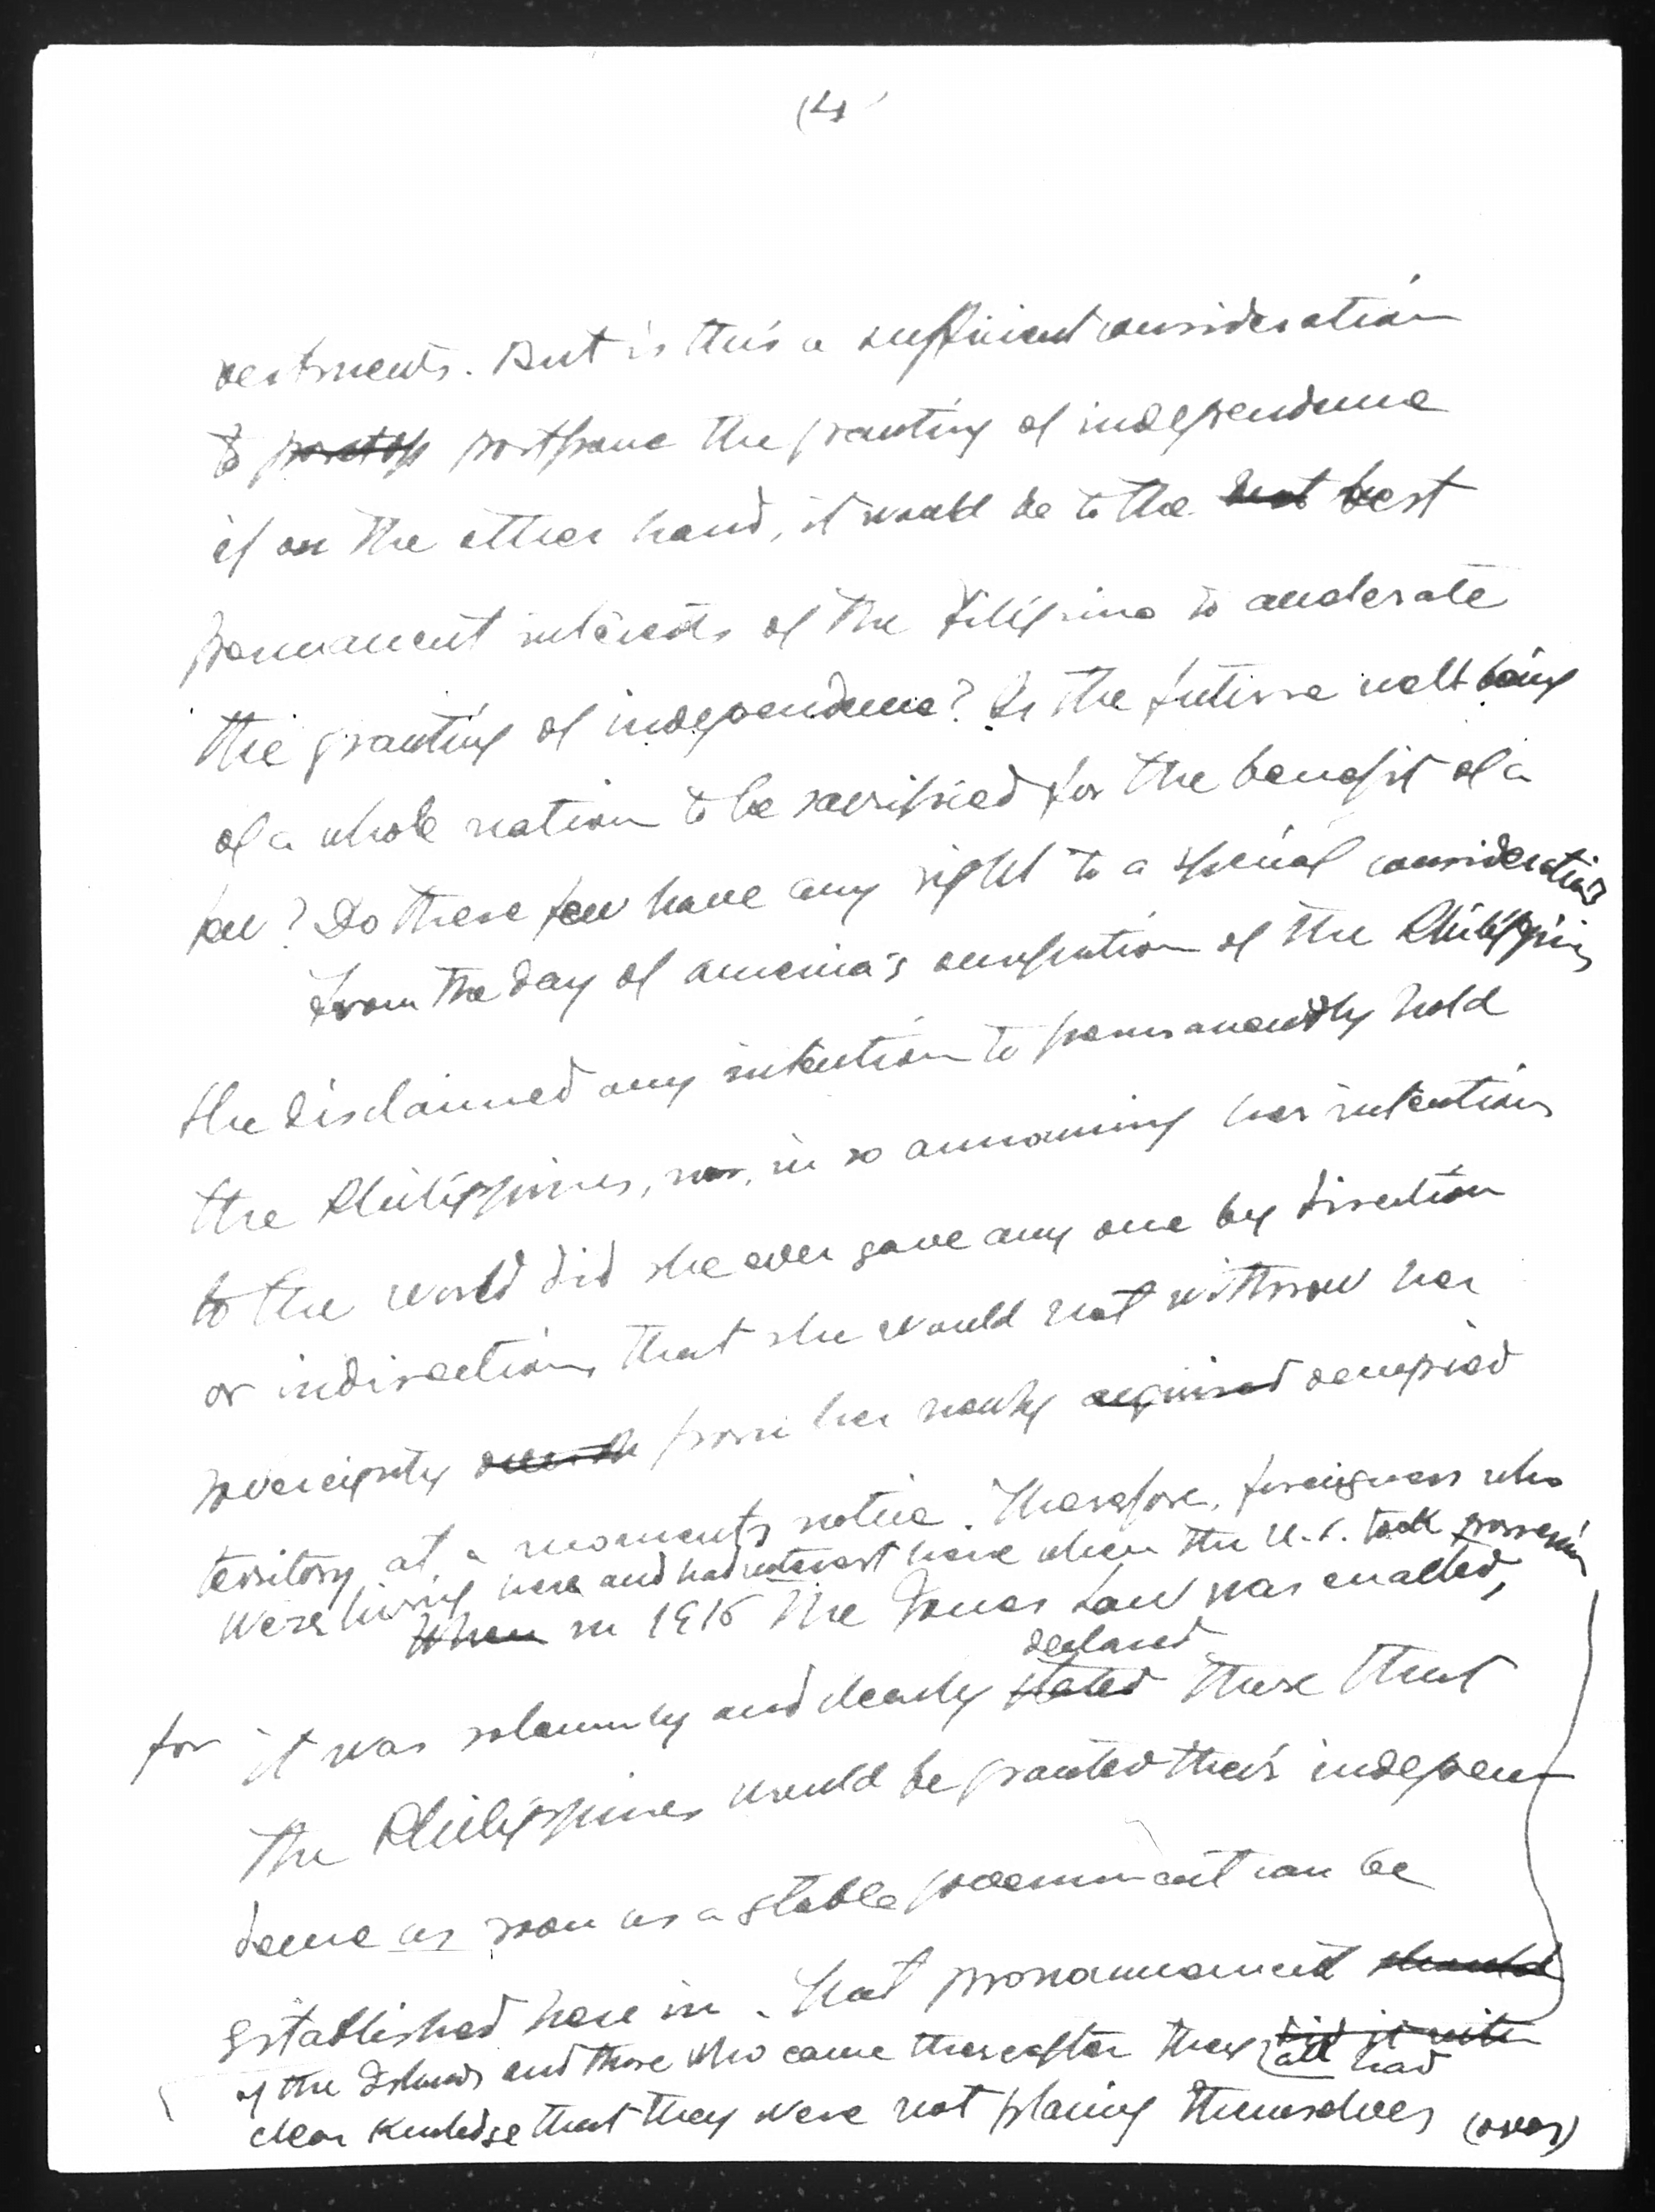 (4)
vestments. But is this a sufficient consideration
to postop postpone the granting of independence
if on the other hand, it would be to the best best
permanent interests of the Filipino to accelerate
the granting of independence? Is the future well being
of a whole nation to be sacrificed for the benefit of a
few? Do these few have any right to a special consideration?
From the day of America's occupation of the Philippines
she disclaimed any intention to permanently hold
the Philippines, nor, in so announcing her intentions
to the world did she ever gave any one by direction
or indirection, that she would not withdraw her
sovereignty over the from her newly acquired occupied
territory at a moments notice. Therefore, foreigners who
were living here and had interest here when the U.S. took possession
When in 1916 the Jones Law was enacted,
declared
for it was solemnly and clearly stated there that
the Philippines would be granted their indepen-
dence as soon as a stable government can be
established here in. That pronouncement should
of the Islands and those who came thereafter they did it with
all had
clear knowledge that they were not placing themselves (over)